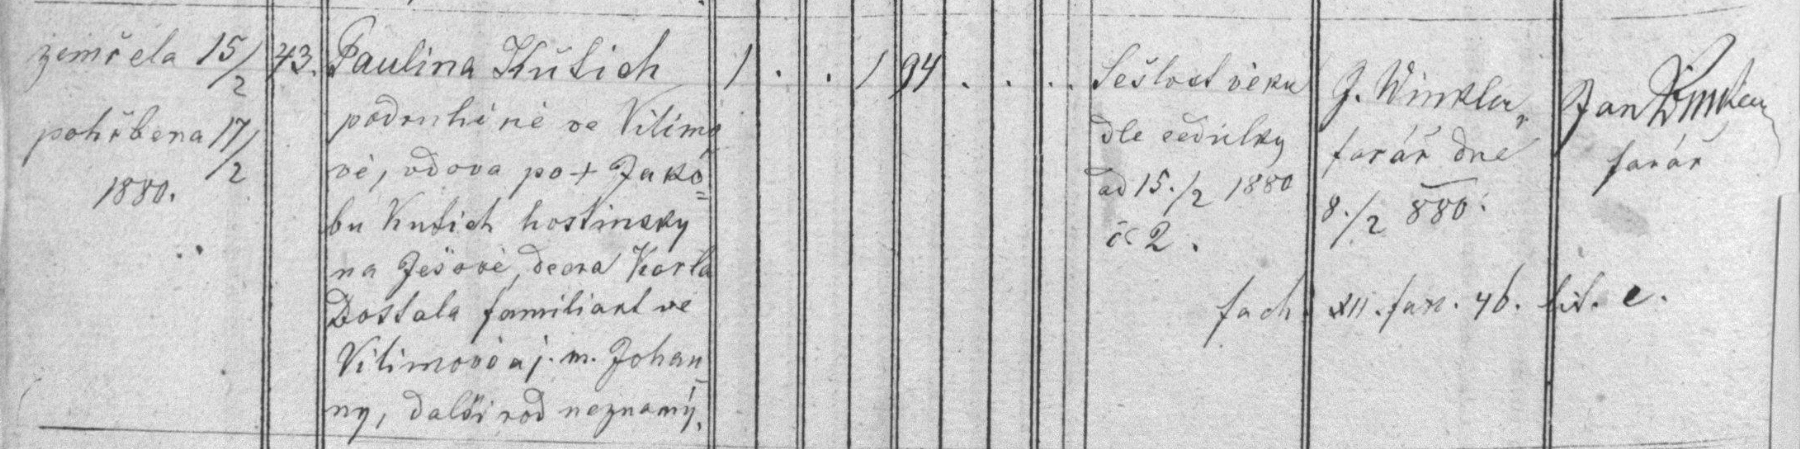 zemřela 15/2
pohřbena 17/2
1880.
43.
Paulina Kušich
podruhině ve Vilimo
vě, vdova po + Jakó=
bu Kušich hostinsky
na Ješově, dcera Karla
Dostala familiant ve
Vilimově a j. m. Johan=
ny, další rod neznamý.
1 . . 1 94 . . . .
Sešlost věku
dle cedulky
ad 15./2 1880
čs 2.
J. Winkler,
farář dne
8./2 880.
Jan Winkler
farář
fach. XII. fasc. 46. lit. c.